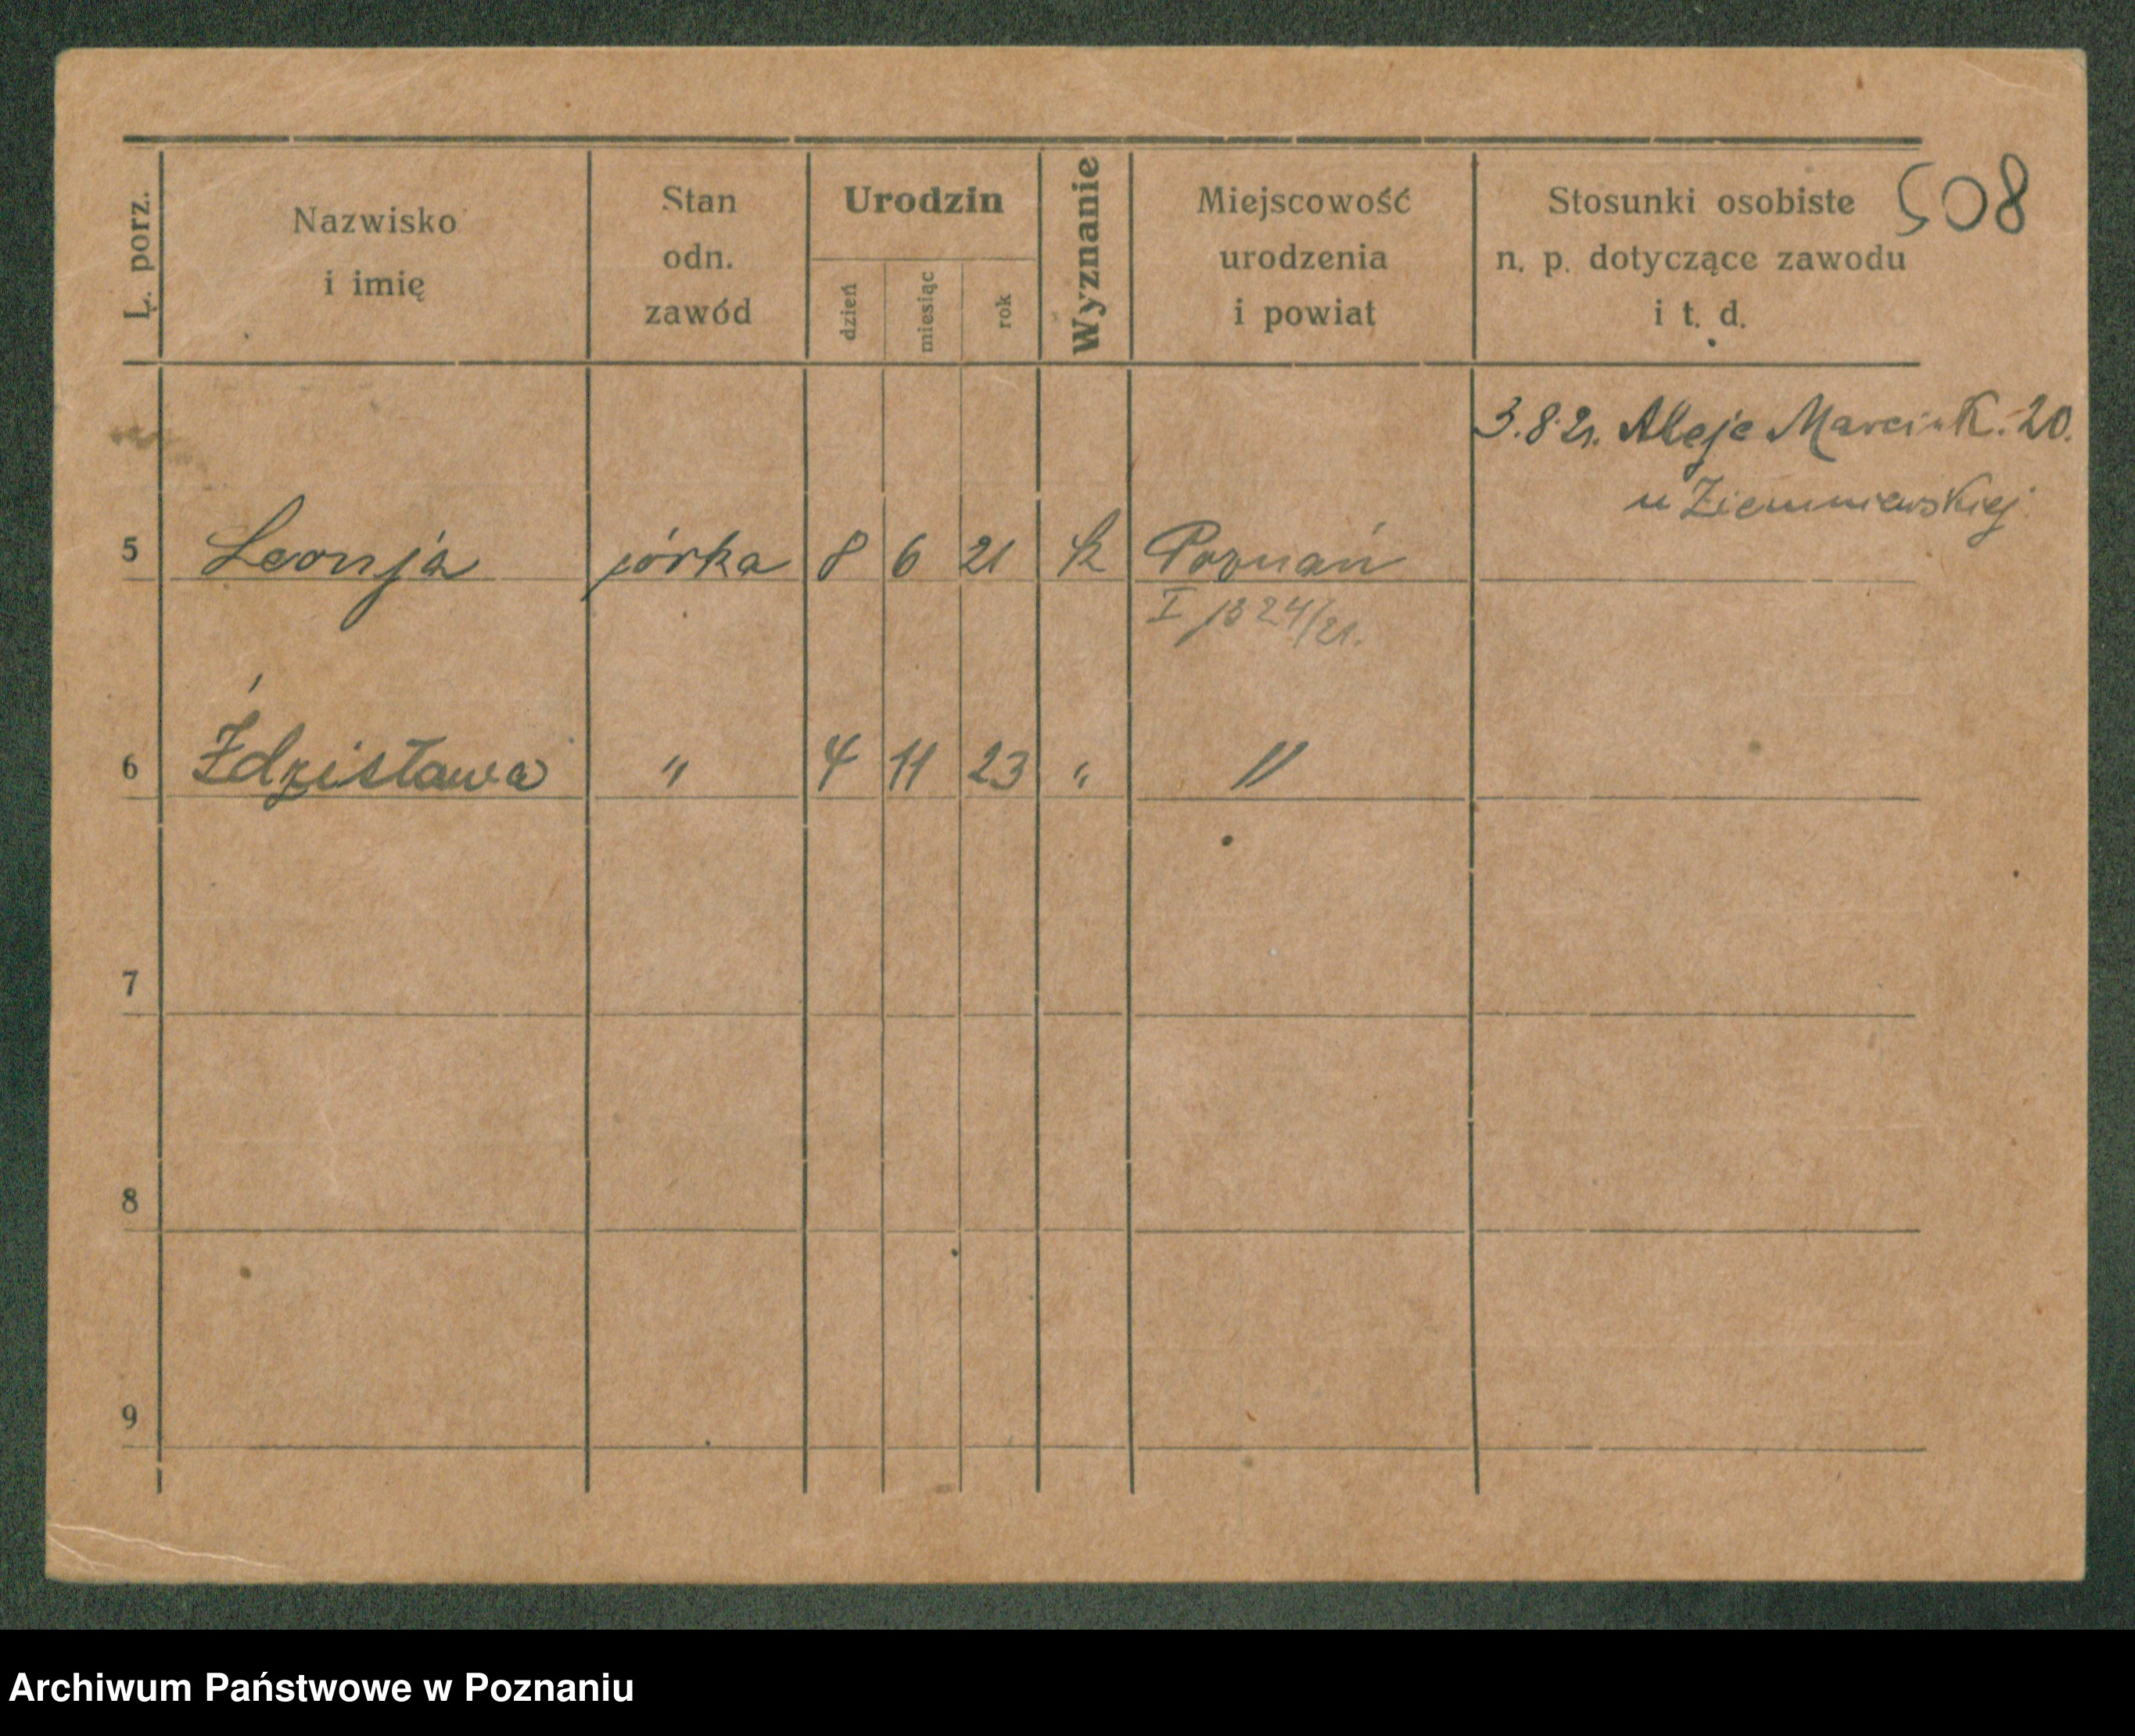 508
L. porz.
Nazwisko
i imię
Stan
odn.
zawód
Urodzin
dzień
miesiąc
rok
Wyznanie
Miejscowość
urodzenia
i powiat
Stosunki osobiste
n. p. dotyczące zawodu
i t. d.
3.8.21. Aleje Marcink. 20.
u Ziemniewskiej
5 Leonja córka 8 6 21 k Poznań
I 1324/21.
6 Ździsława " 4 11 23 " "
7
8
9
Archiwum Państwowe w Poznaniu